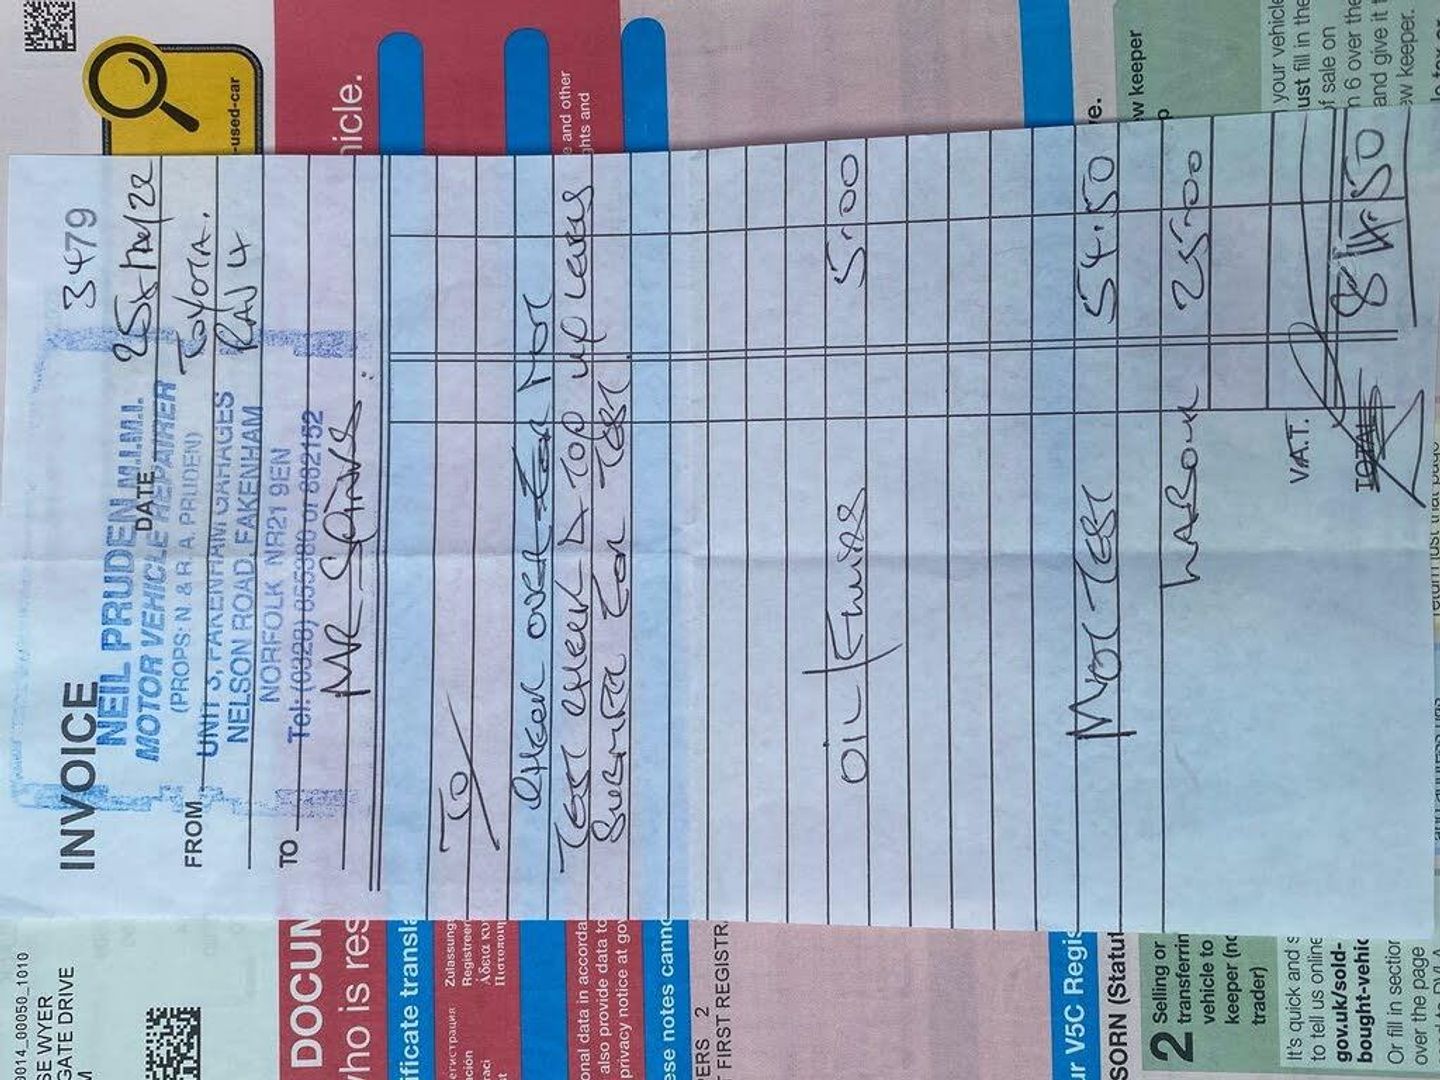 INVOICE
3479
NEIL PRUDEN M.I.M.I.
MOTOR VEHICLE REPAIRER
(PROPS: N. & R. A. PRUDEN)
UNIT 3, FAKENHAM GARAGES
NELSON ROAD, FAKENHAM
NORFOLK NR21 9EN
Tel: (0328) 855380 or 862152
DATE 25th May/22
FROM
TOYOTA.
RAV 4
TO
MR
TO
CHECK OVER FOR MOT
TEST CHECK & TOP UP LEVELS
SUBMIT FOR TEST.
OIL/ 5.00
MOT TEST 54.50
LABOUR 25.00
V.A.T.
TOTAL 84.50
-used-car
hicle.
e and other
ghts and
ve.
ew keeper
your vehicle
ust fill in the
f sale on
n 6 over the
and give it t
ew keeper.
0014_000050_1010
SE WYER
GATE DRIVE
M
DOCUM
who is res
ificate transla
Zulassungs
Registreer
Άδεια κυ
егистрация
onal data in accorda
also provide data to
privacy notice at gov
ese notes canno
ERS 2
FIRST REGISTR
ur V5C Regis
SORN (Statut
2 Selling or
transferrin
vehicle to
keeper (no
trader)
It's quick and s
to tell us online
gov.uk/sold-
bought-vehic
Or fill in section
over the page